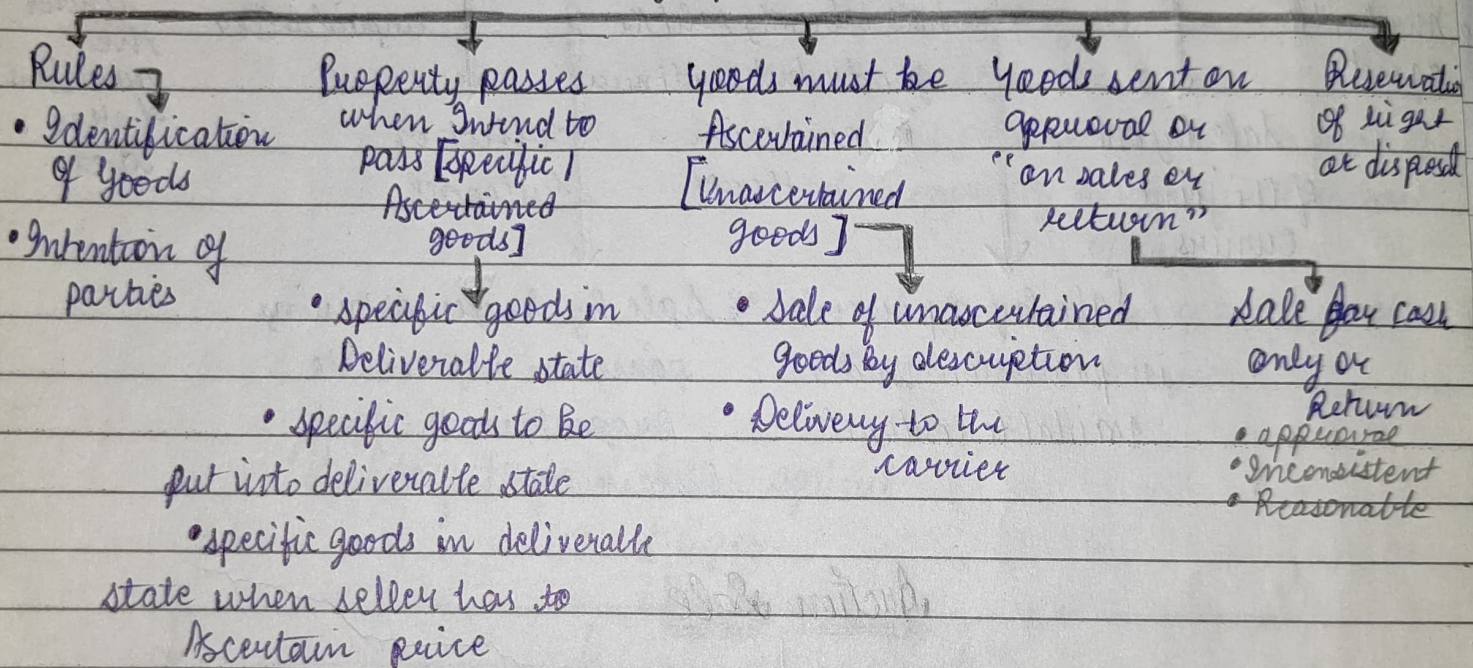 Rules
• Identification
of Goods
• Intention of
parties
Property passes
when Intend to
pass [specific /
Ascertained
goods]
• specific goods in
Deliverable state
• specific goods to be
put into deliverable state
• specific goods in deliverable
state when seller has to
Ascertain price
Goods must be
Ascertained
[Unascertained
goods]
• Sale of unascertained
goods by description
• Delivery to the
carrier
Goods sent on
approval or
"on sales or
return"
Sale for cash
only or
Return
• approval
• Inconsistent
• Reasonable
Reservatio
of right
or disposal